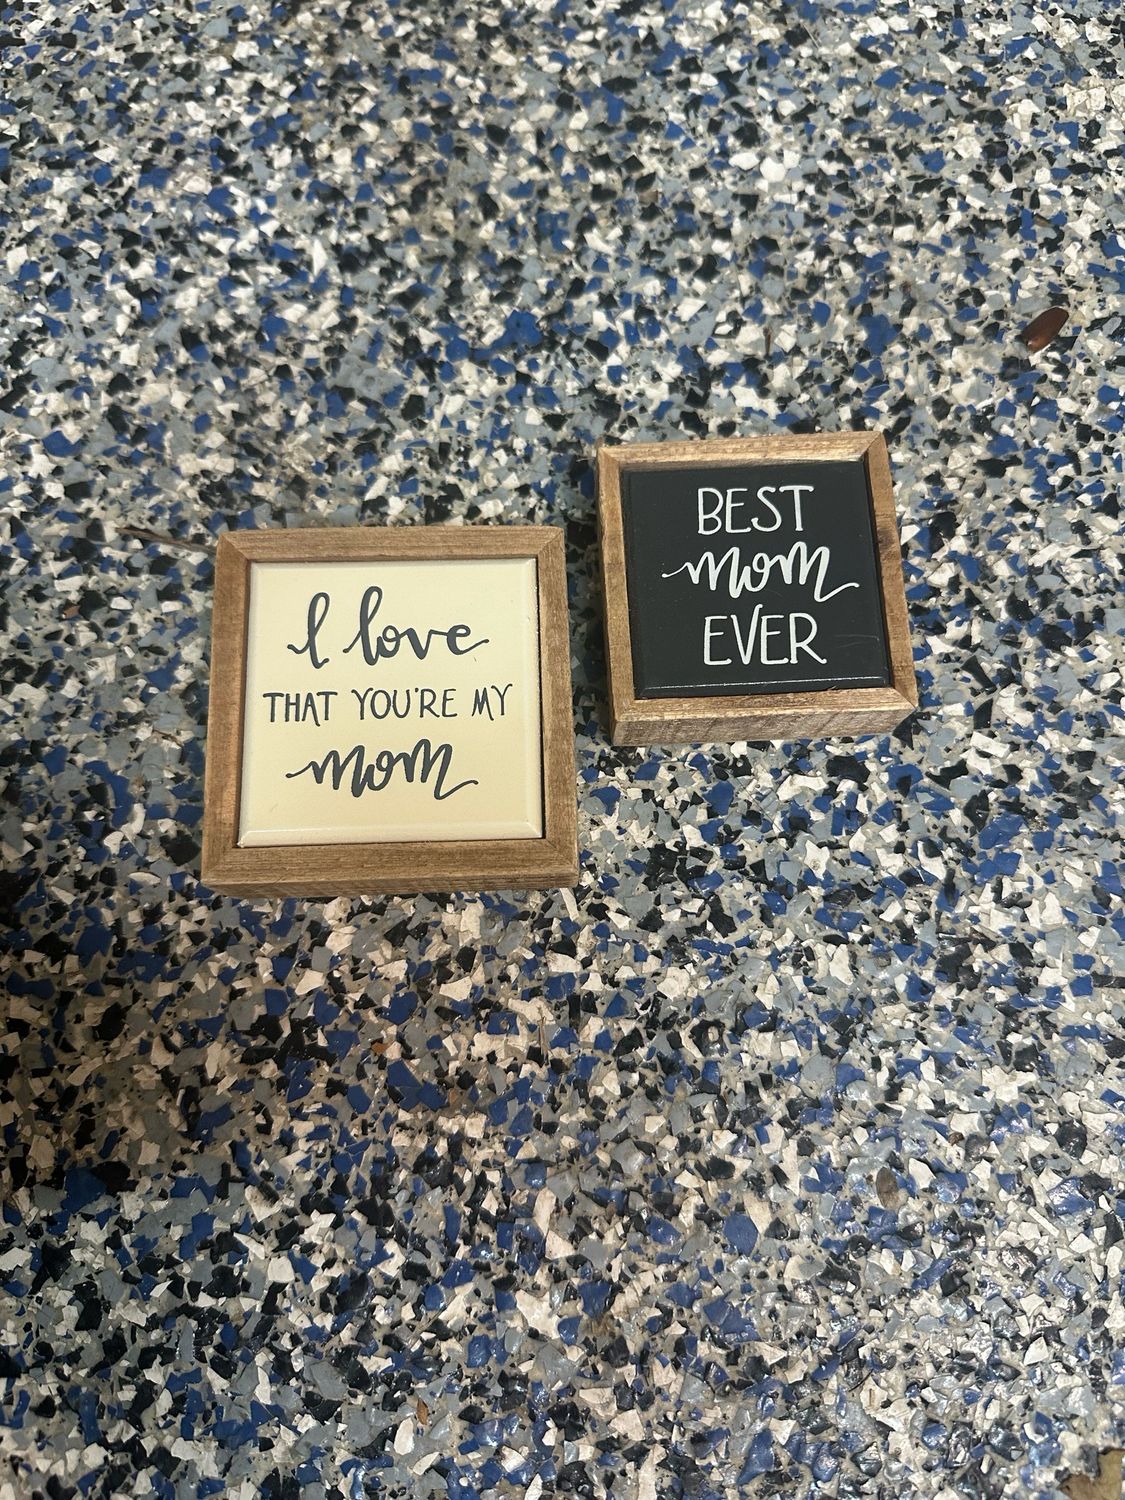 I love
THAT YOU'RE MY
mom
BEST
mom
EVER